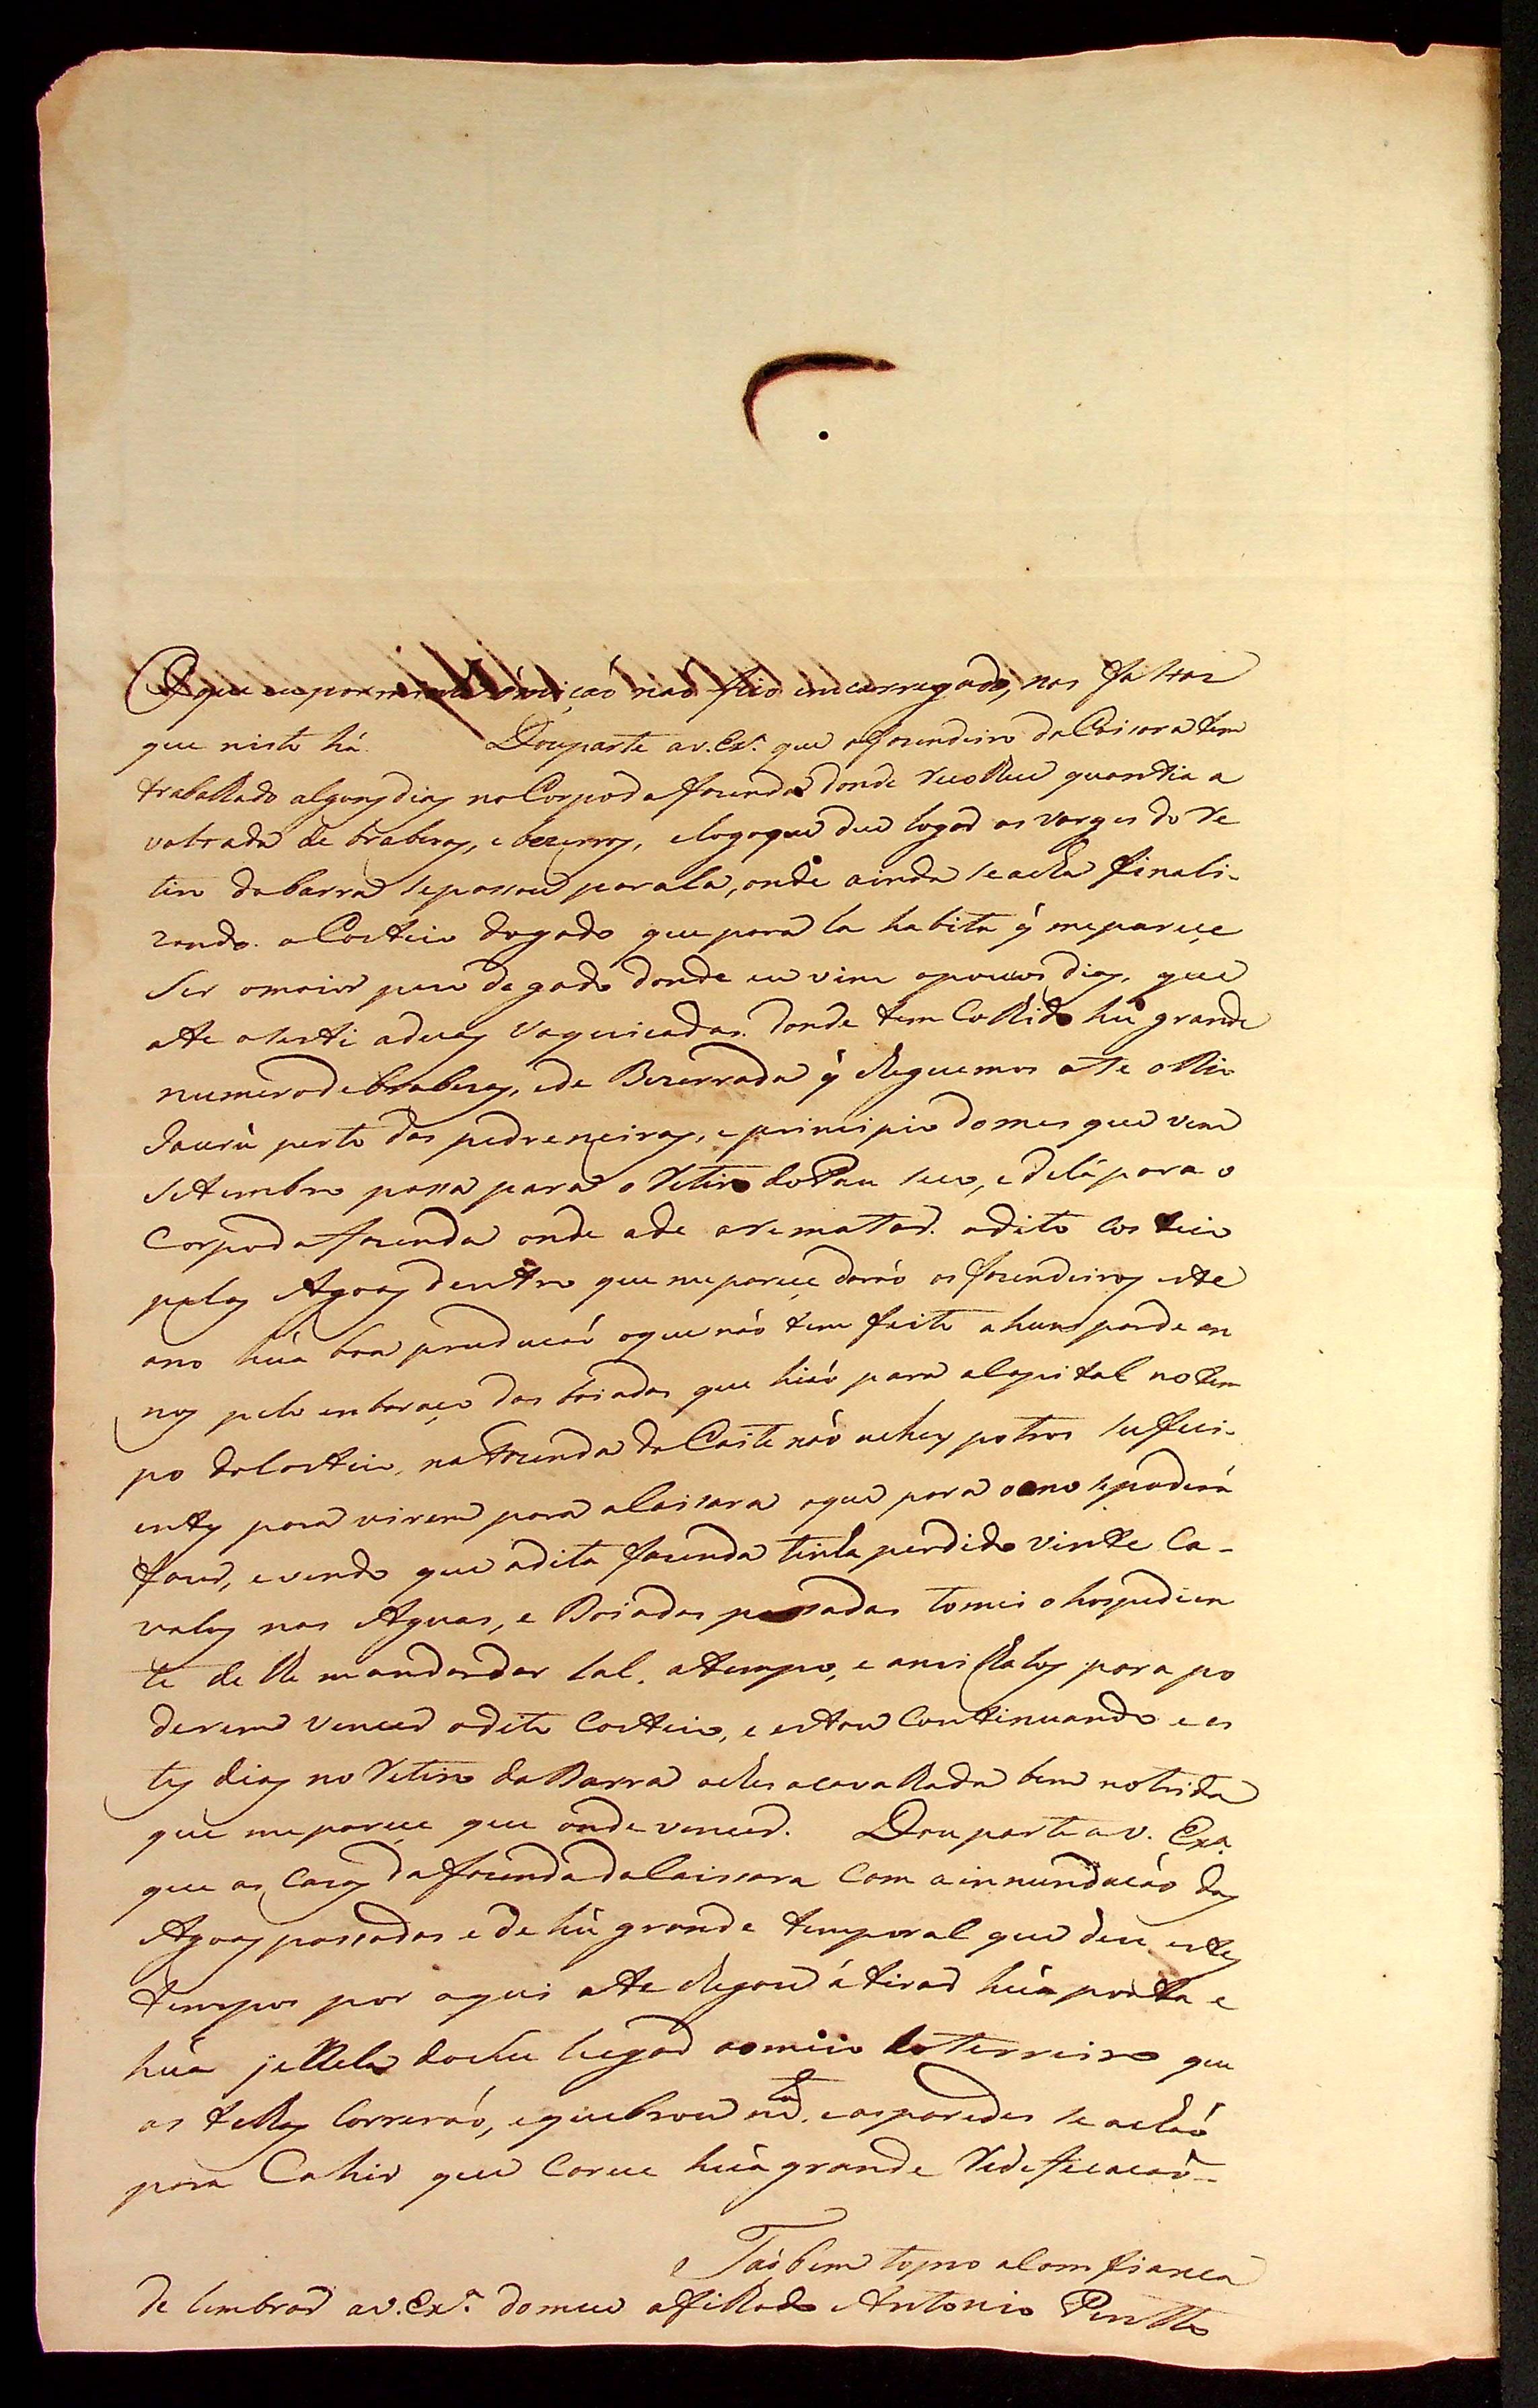 que eu por minha omiçaó nao fico encarregado, nas faltas
que nisto há. Dou parte a v. Exª. que o fazendeiro da Caissara tem
trabalhado algung dias no Corpo da fazenda donde recolheu quantia a
vabrada de brabezas, e bezerros, e logo que deu logar as varges do Re
tiro da barra se passou para la, onde ainda se acha finali-
zando o Costeio do gado que para la habita q̃ me parece
ser o maior pezo de gado donde eu vim a poucos dias, que
ate asesti a duas vaqueicadas donde tem Colhido hũ grande
numero de brabezas, e de Bezerrada q̃ cheguemos ate o Rio
Jaurú perto das pedreneiras, e principio do mes que vem
Setembro passa para o Retiro do Pau seco, e de lá para o
Corpo da fazenda onde a de arematar o dito costeio
pelas Agoas dentro que me parece daráo os fazendeiros este
ano húa boa produçaó o que náo tem feito a huns par de an
nos pelo enbaraço das boiadas que hiáo para a Capital no tem
po do Costeio, na fazenda da Caste náo achey potros sufici-
entes para virem para a Caissara o que para o ano se poderá
fazer, e vendo que a dita fazenda tinha perdido vinte Ca-
valos nas Aguas, e Boiadas passadas tomei o hospedien
te de lhe mandar dar sal, a tempo, e a milhalos para po
derem vencer o dito Costeio, e estou Continuando e es
tes dias no Retiro da Barra achei a cavalhada bem notrida
que me parece que onde vencer. Dou parte a v. Exª.
que as Casas da fazenda da Caissara Com a innundaçáo das
Agoas passadas e de hũ grande temporal que deu estes
tempos por aqui ate chegou á tirar húa porta e
húa jenela do seu lugar ao meio do terreiro que
as telhas Correráo, e quebrou mtas. e as paredes se acháó
para Cahir que Carece húa grande Redeficacaó-
Taóbem tomo a Comfianca
de lembrar a v. Exª. do meu afilhado Antonio